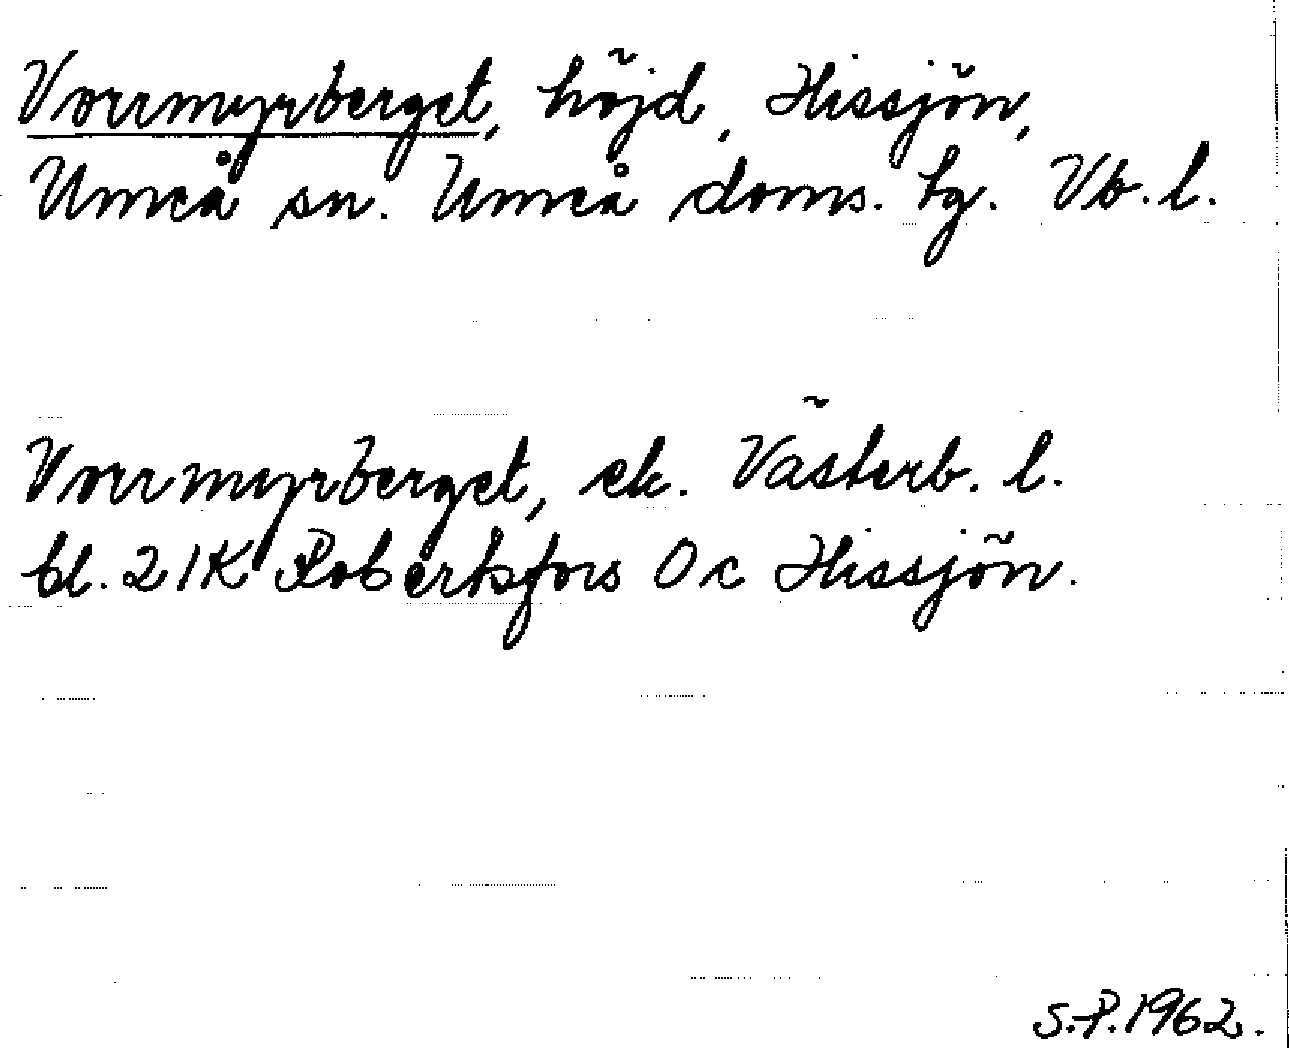 Vorrmyrberget, höjd, Hissjön,
Umeå sn. Umeå doms. tg. Vb. l.
Vorrmyrberget, ek. Västerb. l.
bl. 21K Robertsfors 0c Hissjön.
S.P. 1962.